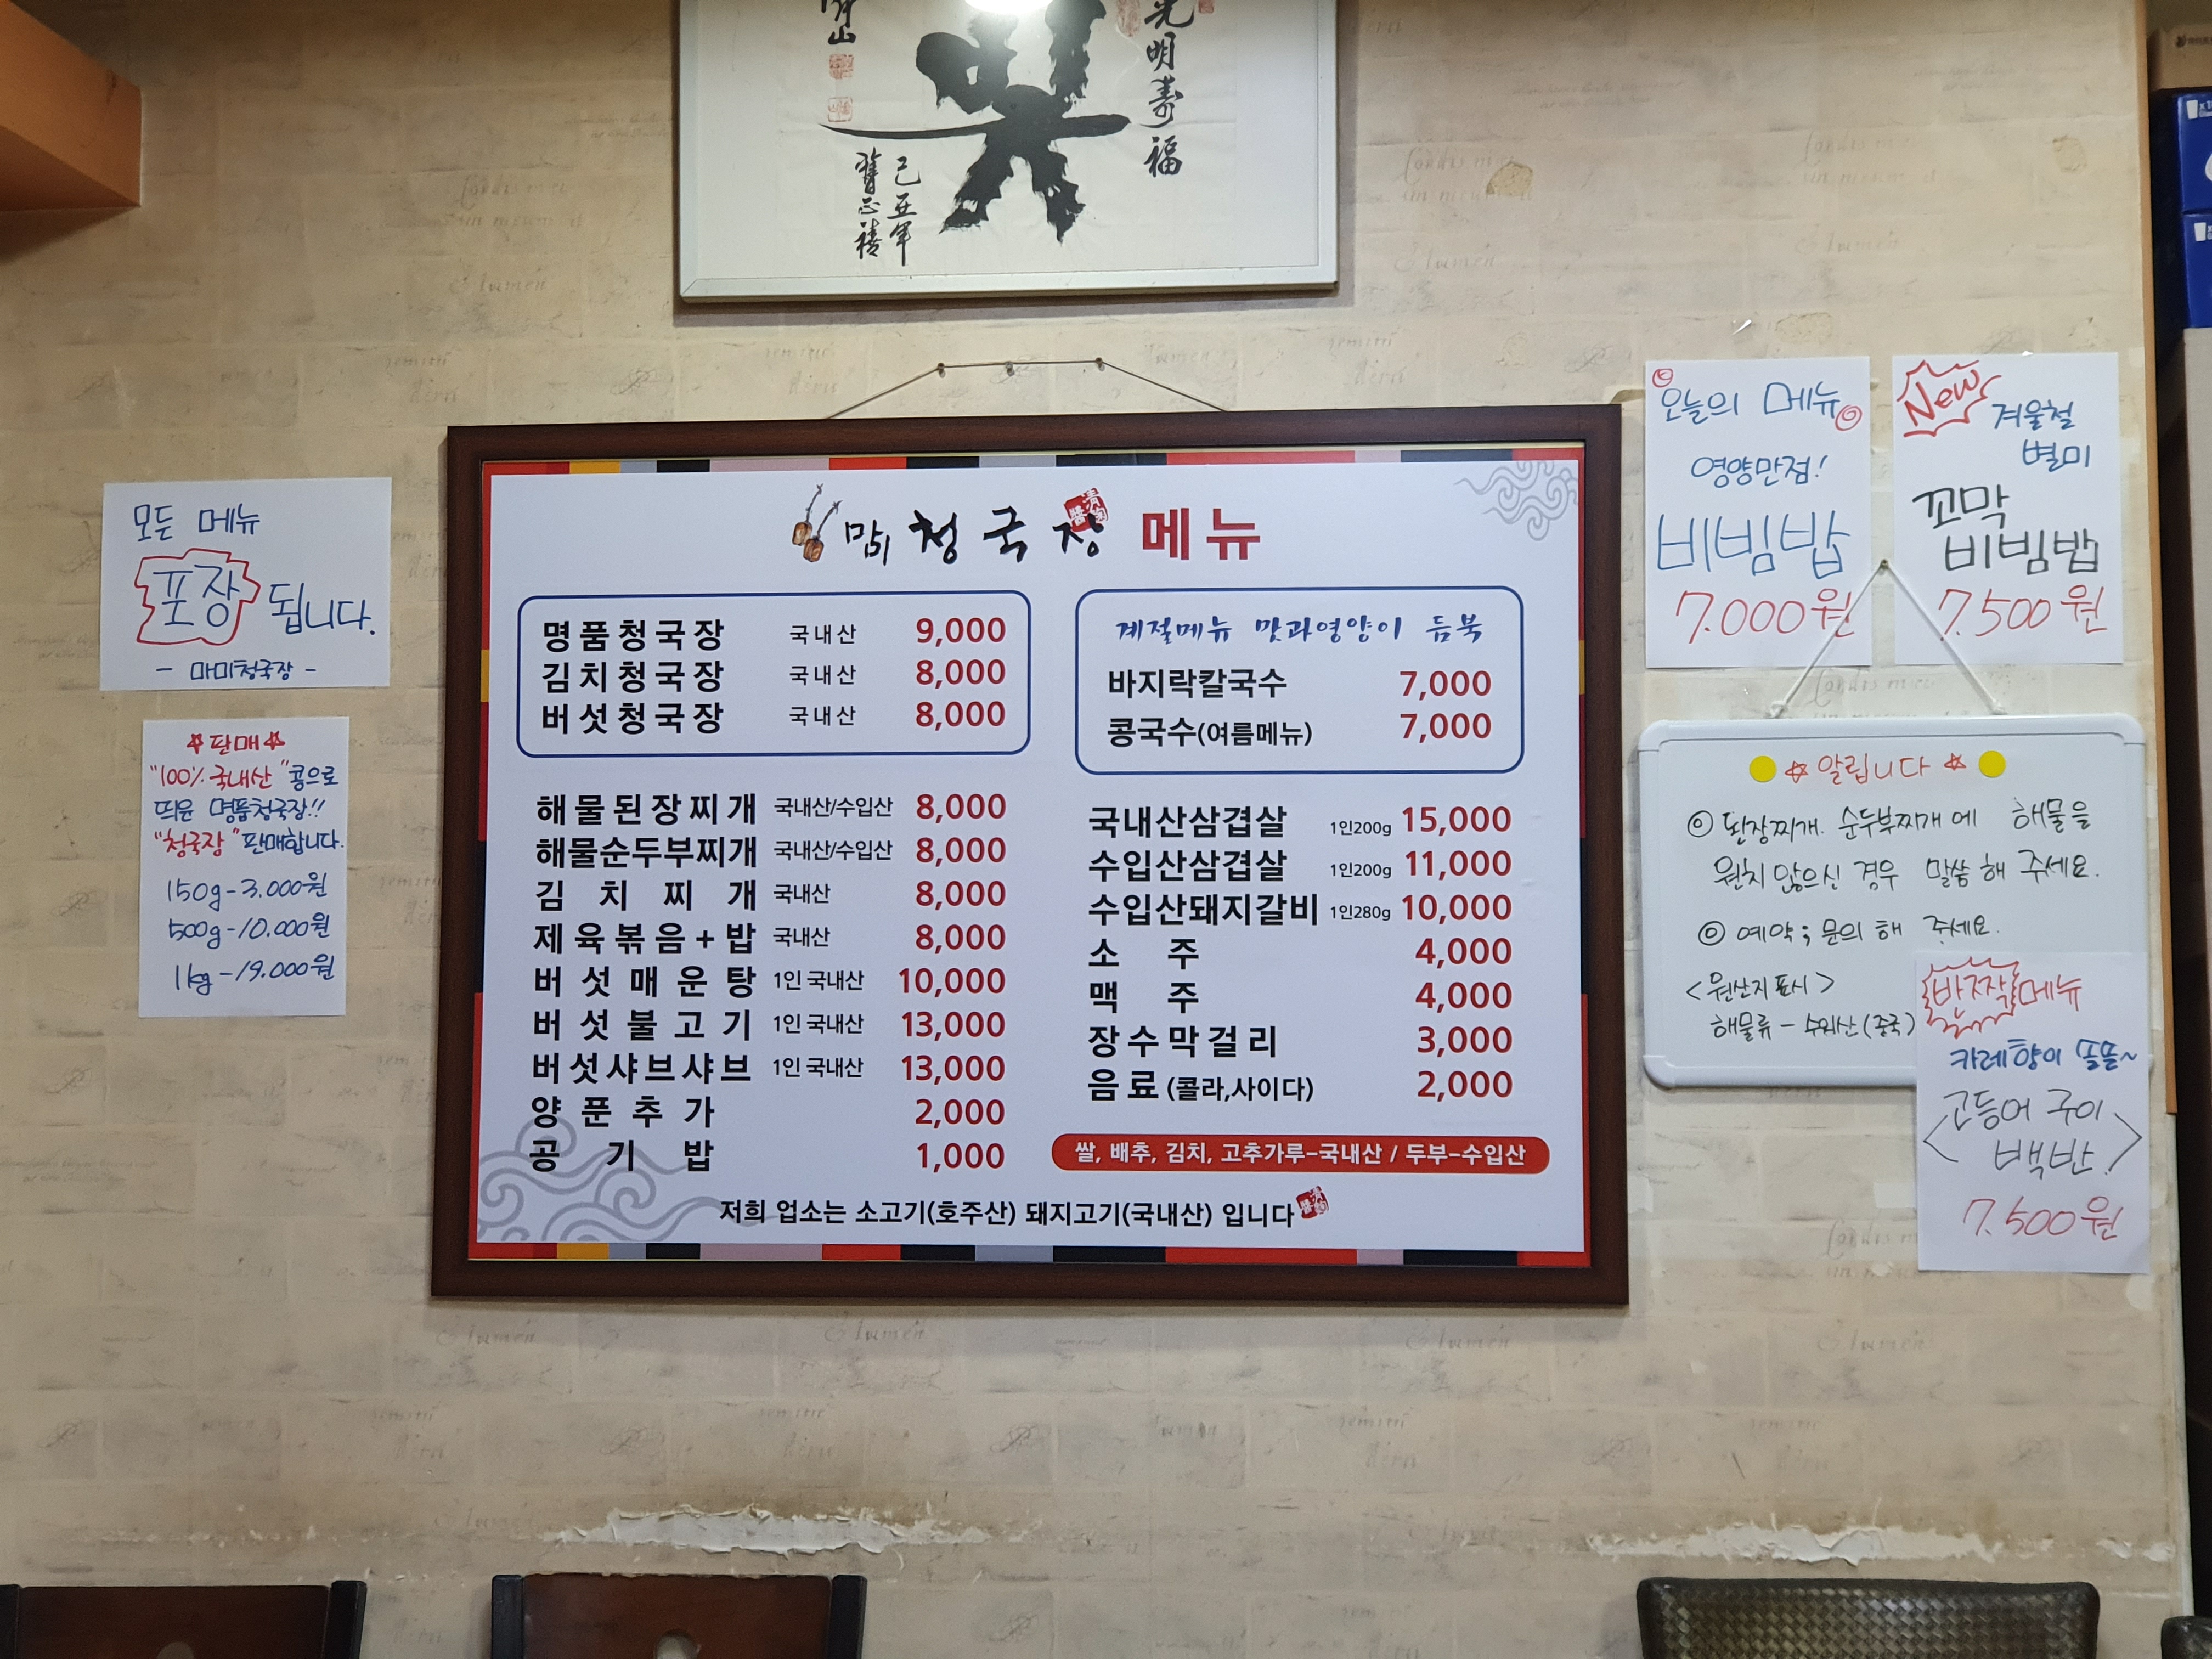 光明壽福
己丑年
모든 메뉴
포장 됩니다.
- 마미청국장 -
☆판매☆
"100% 국내산" 콩으로
띄운 명품청국장!!
"청국장" 판매합니다.
150g-3.000원
500g-10.000원
1kg-19.000원
청국장 메뉴
명품청국장 국내산 9,000
김치청국장 국내산 8,000
버섯청국장 국내산 8,000
해물된장찌개 국내산/수입산 8,000
해물순두부찌개 국내산/수입산 8,000
김치찌개 국내산 8,000
제육볶음+밥 국내산 8,000
버섯매운탕 1인 국내산 10,000
버섯불고기 1인 국내산 13,000
버섯샤브샤브 1인 국내산 13,000
양푼추가 2,000
공기밥 1,000
계절메뉴 맛과영양이 듬북
바지락칼국수 7,000
콩국수(여름메뉴) 7,000
국내산삼겹살 1인200g 15,000
수입산삼겹살 1인200g 11,000
수입산돼지갈비 1인280g 10,000
소주 4,000
맥주 4,000
장수막걸리 3,000
음료(콜라,사이다) 2,000
쌀, 배추, 김치, 고추가루-국내산 / 두부-수입산
저희 업소는 소고기(호주산) 돼지고기(국내산) 입니다
오늘의 메뉴
영양만점!
비빔밥
7.000원
New 겨울철
별미
꼬막
비빔밥
7.500원
☆ 알립니다 ☆
◎ 된장찌개. 순두부찌개에 해물을
원치 않으신 경우 말씀해 주세요.
◎ 예약; 문의 해 주세요.
<원산지 표시>
해물류 - 수입산(중국)
반짝 메뉴
카레향이 솔솔~
<고등어 구이
백반>
7.500원